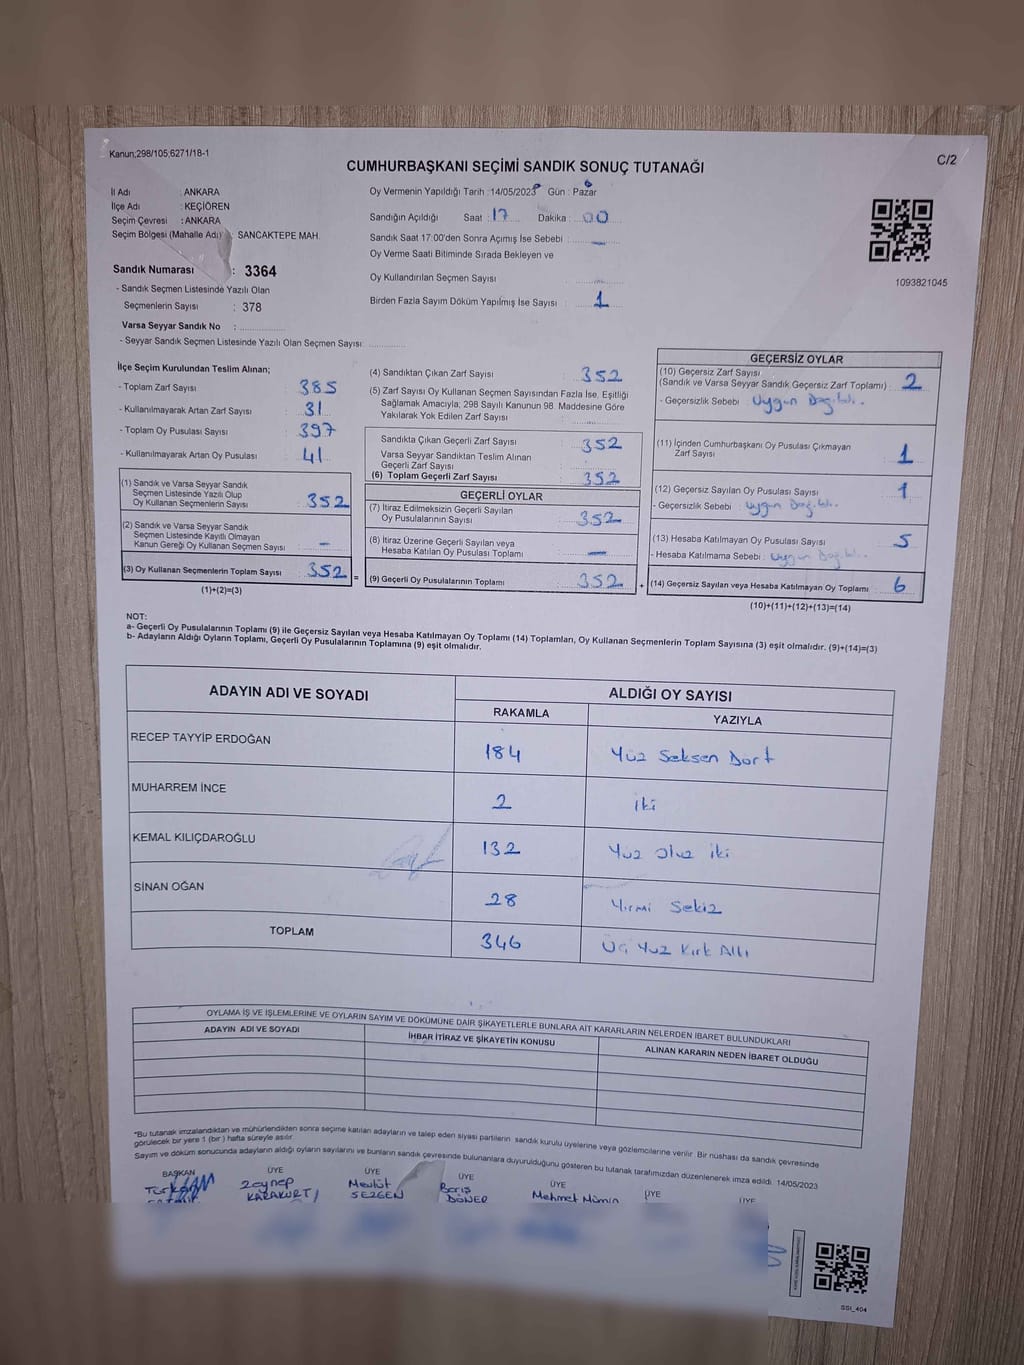 Kanun;298/105;6271/18-1
C/2
CUMHURBAŞKANI SEÇİMİ SANDIK SONUÇ TUTANAĞI
İl Adı : ANKARA
İlçe Adı : KEÇİÖREN
Seçim Çevresi : ANKARA
Seçim Bölgesi (Mahalle Adı) : SANCAKTEPE MAH.
Sandık Numarası : 3364
- Sandık Seçmen Listesinde Yazılı Olan
Seçmenlerin Sayısı : 378
Varsa Seyyar Sandık No :
- Seyyar Sandık Seçmen Listesinde Yazılı Olan Seçmen Sayısı:
Oy Vermenin Yapıldığı Tarih : 14/05/2023 Gün : Pazar
Sandığın Açıldığı Saat : 17 Dakika : 00
Sandık Saat 17:00'den Sonra Açımış İse Sebebi : —
Oy Verme Saati Bitiminde Sırada Bekleyen ve
Oy Kullandırılan Seçmen Sayısı :
Birden Fazla Sayım Döküm Yapılmış İse Sayısı : 1
1093821045
İlçe Seçim Kurulundan Teslim Alınan;
- Toplam Zarf Sayısı : 385
- Kullanılmayarak Artan Zarf Sayısı : 31
- Toplam Oy Pusulası Sayısı : 397
- Kullanılmayarak Artan Oy Pusulası : 41
(1) Sandık ve Varsa Seyyar Sandık
Seçmen Listesinde Yazılı Olup
Oy Kullanan Seçmenlerin Sayısı : 352
(2) Sandık ve Varsa Seyyar Sandık
Seçmen Listesinde Kayıtlı Olmayan
Kanun Gereği Oy Kullanan Seçmen Sayısı : —
(3) Oy Kullanan Seçmenlerin Toplam Sayısı : 352 =
(1)+(2)=(3)
(4) Sandıktan Çıkan Zarf Sayısı : 352
(5) Zarf Sayısı Oy Kullanan Seçmen Sayısından Fazla İse, Eşitliği
Sağlamak Amacıyla; 298 Sayılı Kanunun 98. Maddesine Göre
Yakılarak Yok Edilen Zarf Sayısı :
Sandıkta Çıkan Geçerli Zarf Sayısı : 352
Varsa Seyyar Sandıktan Teslim Alınan
Geçerli Zarf Sayısı :
(6) Toplam Geçerli Zarf Sayısı : 352
GEÇERLİ OYLAR
(7) İtiraz Edilmeksizin Geçerli Sayılan
Oy Pusulalarının Sayısı : 352
(8) İtiraz Üzerine Geçerli Sayılan veya
Hesaba Katılan Oy Pusulası Toplamı : —
(9) Geçerli Oy Pusulalarının Toplamı : 352 +
GEÇERSİZ OYLAR
(10) Geçersiz Zarf Sayısı
(Sandık ve Varsa Seyyar Sandık Geçersiz Zarf Toplamı) : 2
- Geçersizlik Sebebi : Uygun Değildi.
(11) İçinden Cumhurbaşkanı Oy Pusulası Çıkmayan
Zarf Sayısı : 1
(12) Geçersiz Sayılan Oy Pusulası Sayısı : 1
- Geçersizlik Sebebi : Uygun Değildi.
(13) Hesaba Katılmayan Oy Pusulası Sayısı : 5
- Hesaba Katılmama Sebebi : Uygun Değildi.
(14) Geçersiz Sayılan veya Hesaba Katılmayan Oy Toplamı : 6
(10)+(11)+(12)+(13)=(14)
NOT:
a- Geçerli Oy Pusulalarının Toplamı (9) ile Geçersiz Sayılan veya Hesaba Katılmayan Oy Toplamı (14) Toplamları, Oy Kullanan Seçmenlerin Toplam Sayısına (3) eşit olmalıdır. (9)+(14)=(3)
b- Adayların Aldığı Oyların Toplamı, Geçerli Oy Pusulalarının Toplamına (9) eşit olmalıdır.
ADAYIN ADI VE SOYADI
ALDIĞI OY SAYISI
RAKAMLA YAZIYLA
RECEP TAYYİP ERDOĞAN 184 Yüz Seksen Dört
MUHARREM İNCE 2 iki
KEMAL KILIÇDAROĞLU 132 Yüz Otuz iki
SİNAN OĞAN 28 Yirmi Sekiz
TOPLAM 346 Üç Yüz Kırk Altı
OYLAMA İŞ VE İŞLEMLERİNE VE OYLARIN SAYIM VE DÖKÜMÜNE DAİR ŞİKAYETLERLE BUNLARA AİT KARARLARIN NELERDEN İBARET BULUNDUKLARI
ADAYIN ADI VE SOYADI İHBAR İTİRAZ VE ŞİKAYETİN KONUSU ALINAN KARARIN NEDEN İBARET OLDUĞU
*Bu tutanak imzalandıktan ve mühürlendikten sonra seçime katılan adayların ve talep eden siyasi partilerin sandık kurulu üyelerine veya gözlemcilerine verilir. Bir nüshası da sandık çevresinde
görülecek bir yere 1 (bir) hafta süreyle asılır.
Sayım ve döküm sonucunda adayların aldığı oyların sayılarını ve bunların sandık çevresinde bulunanlara duyurulduğunu gösteren bu tutanak tarafımızdan düzenlenerek imza edildi. 14/05/2023
BAŞKAN ÜYE ÜYE ÜYE ÜYE ÜYE ÜYE
Türkan Zeynep Mevlüt Barış Mehmet Mümin
KARAKURT SEZGEN DÖNER
SSI_404